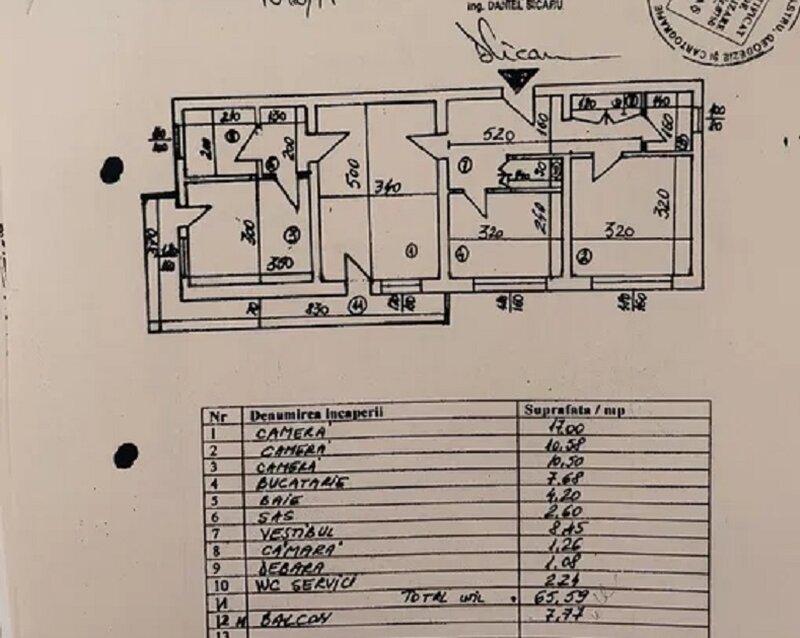 ing. DANIEL BICARU
GEODEZIE ȘI CARTOGRAFIE
210
130
120
140
200
200
500
340
520
160
160
240
320
320
320
300
350
830
Nr Denumirea incaperii Suprafata / mp
1 CAMERA 17.00
2 CAMERA 10,58
3 CAMERA 10,50
4 BUCATARIE 7.68
5 BAIE 4,20
6 SAS 2.60
7 VESTIBUL 8,45
8 CAMARA 1,26
9 DEBARA 1,08
10 WC SERVICI 2.24
11 TOTAL UTIL 65,59
12 BALCON 7,77
13